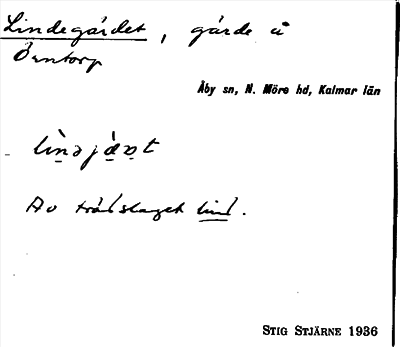 Lindegärdet, gärde å
Örntorp
Åby sn, N. Möre hd, Kalmar län
Av trädslaget lind.
STIG STJÄRNE 1936